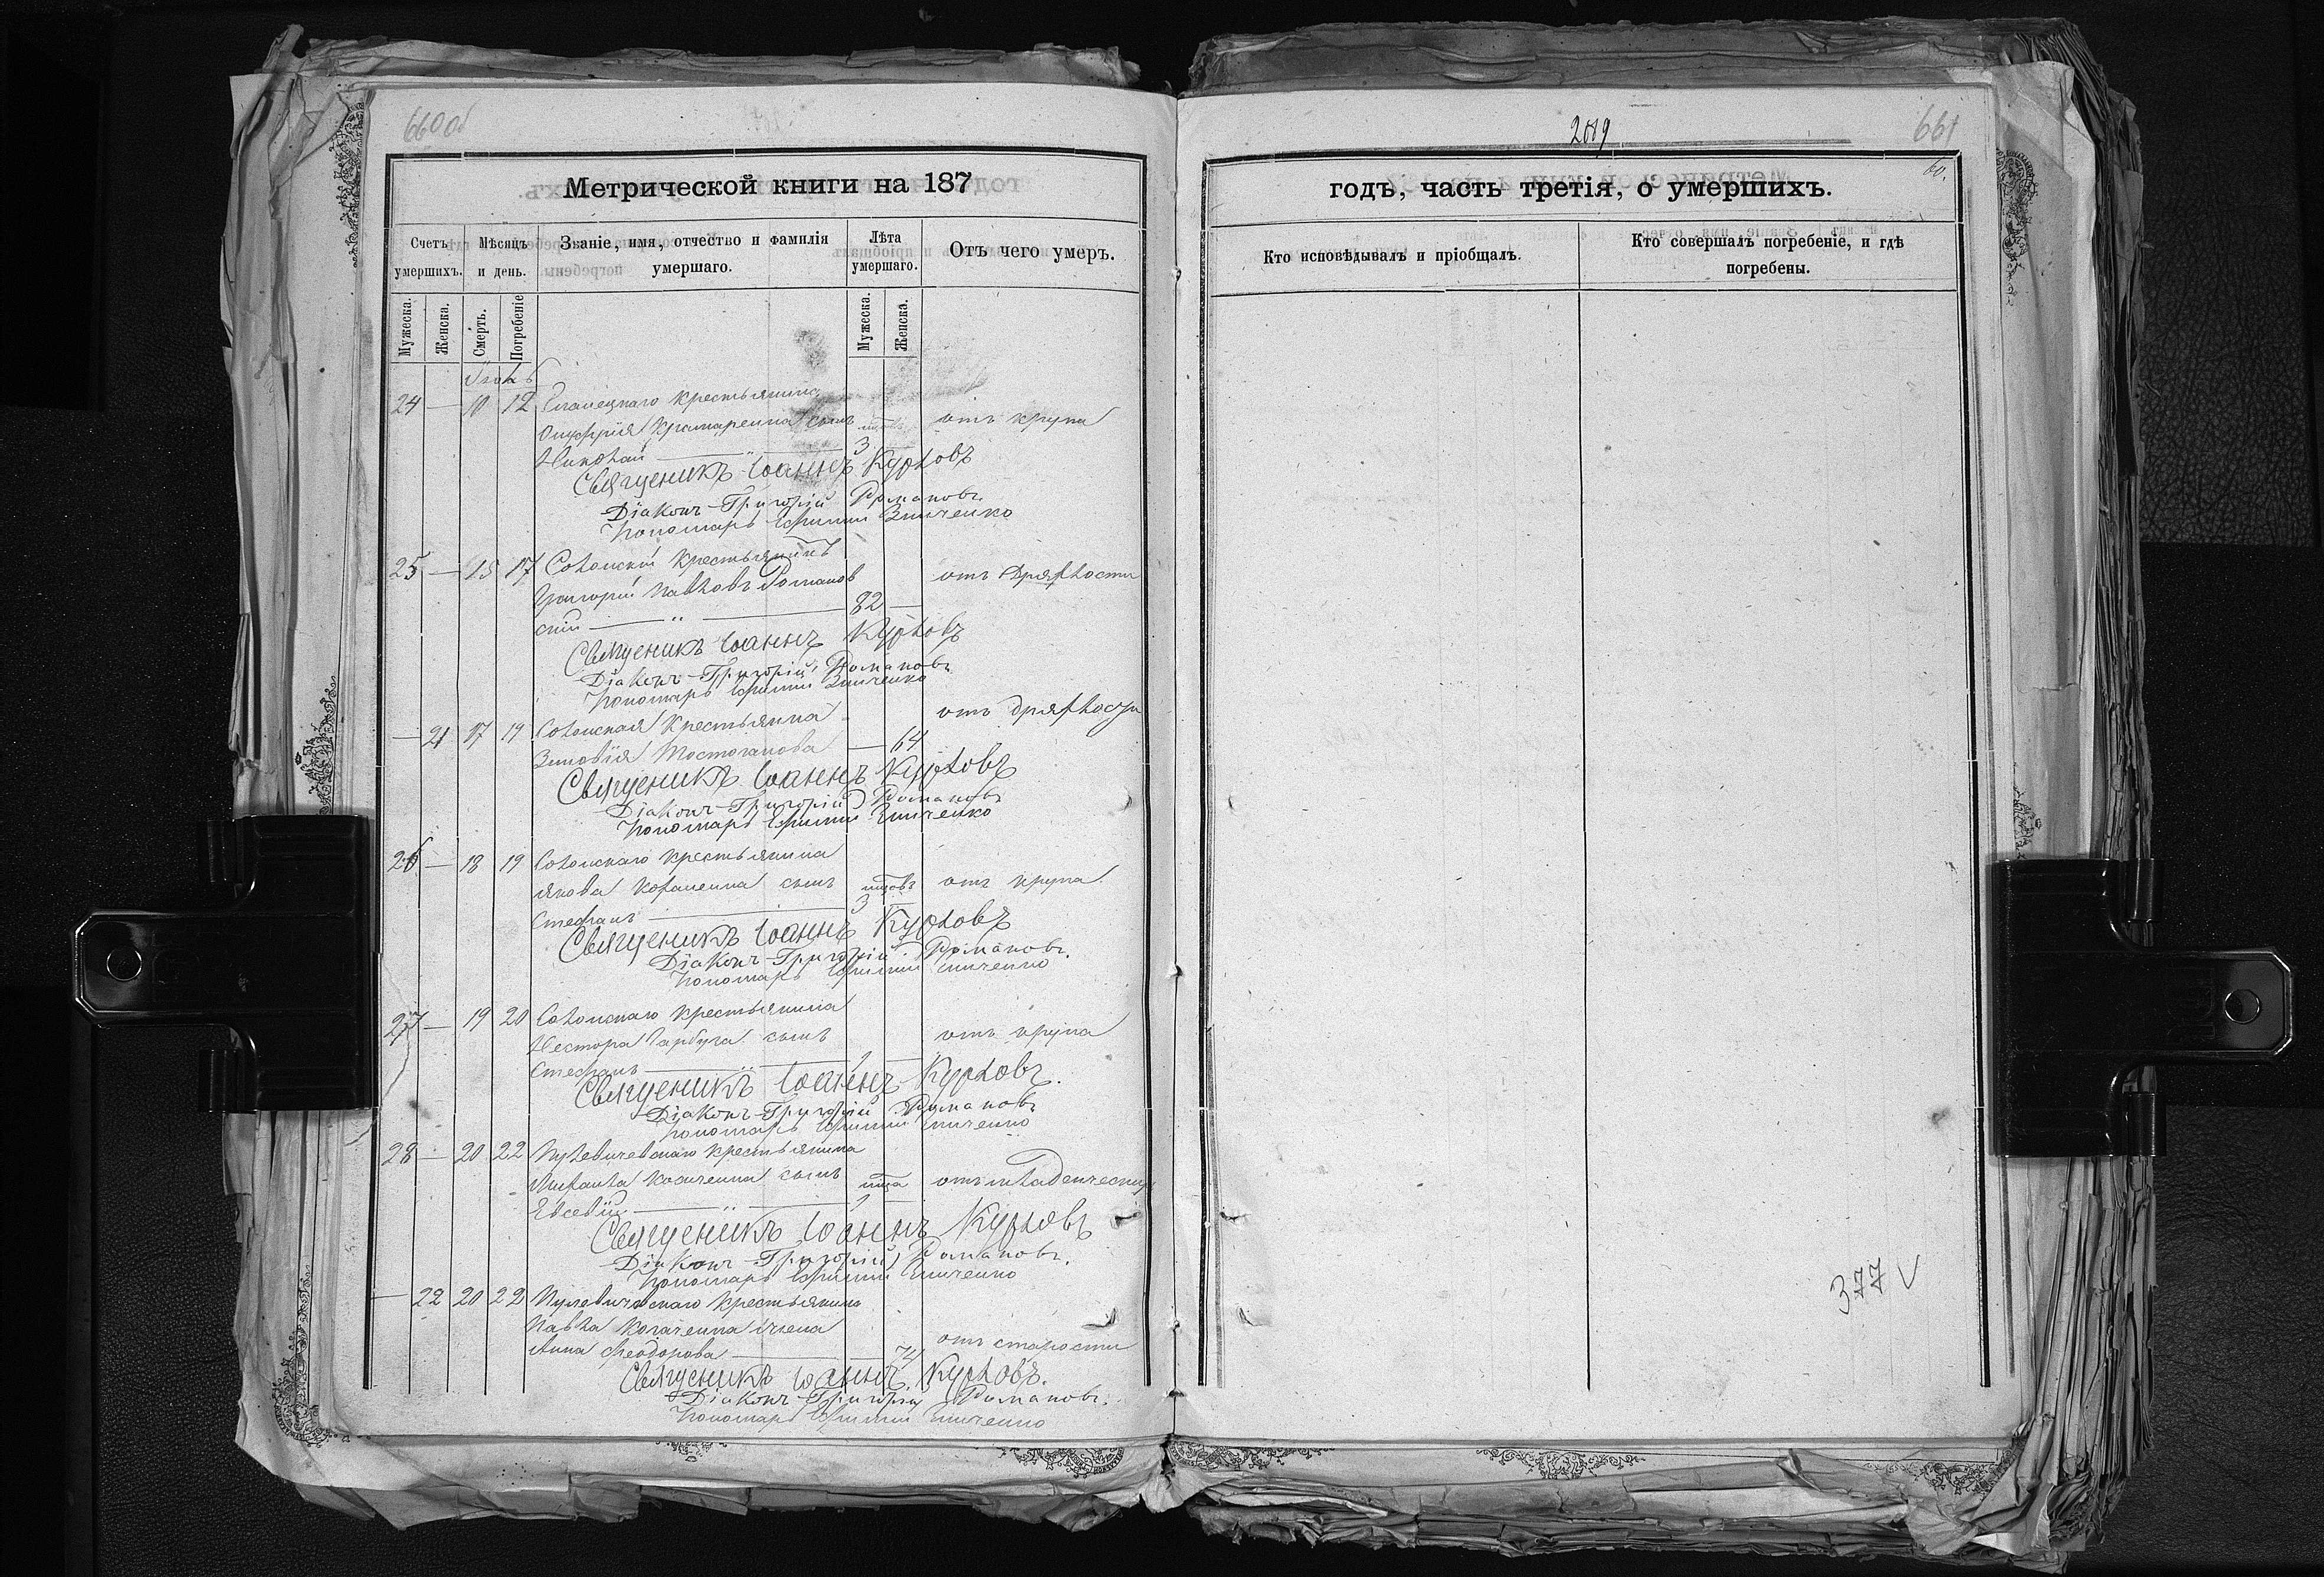 660 об
Метрической книги на 187
Счетъ умершихъ.
Мѣсяцъ и день.
Званіе, имя, отчество и фамилія умершаго.
Лѣта умершаго.
Отъ чего умеръ.
Мужеска.
Женска.
Смерть.
Погребеніе
Мужеска.
Женска.
24 — 10 12 Еланецкаго крестьянина
Онуфрія Крамаренка сынъ отъ крупа
Николай — 3
Священикъ Іоаннъ Курловъ
Діаконъ Григорій Романовъ
Пономарь Ефимій Зинченко
25 — 15 17 Солонскій крестьянинъ
Григорій Павловъ Романов отъ дряхлости
скій — 82 —
Священикъ Іоаннъ Курловъ
Діаконъ Григорій Романовъ
Пономарь Ефимій Зинченко
— 21 17 19 Солонская крестьянка отъ дряхлости
Зиновія — 64
Священикъ Іоаннъ Курловъ
Діаконъ Григорій Романовъ
Пономарь Ефимій Зинченко
26 — 18 19 Солонскаго крестьянина
Якова сынъ мцовъ отъ крупа
Стефанъ — 3
Священикъ Іоаннъ Курловъ
Діаконъ Григорій Романовъ.
Пономарь Ефимій Зинченко
27 — 19 20 Солонскаго крестьянина
Нестора Гарбуза сынъ отъ крупа
Стефанъ — 1 —
Священикъ Іоаннъ Курловъ.
Діаконъ Григорій Романовъ
Пономарь Ефимій Зинченко
28 — 20 22 крестьянина
Михаила сынъ мца отъ младенческой
Евсевій — 1 —
Священикъ Іоаннъ Курловъ
Діаконъ Григорій Романовъ.
Пономарь Ефимій Зинченко
— 22 20 22 крестьянина
Павла жена
Анна Феодорова — 74 отъ старости
Священикъ Іоаннъ Курловъ.
Діаконъ Григорій Романовъ.
Пономарь Ефимій Зинченко
661
60.
годъ, часть третія, о умершихъ.
Кто исповѣдывалъ и пріобщалъ.
Кто совершалъ погребеніе, и гдѣ погребены.
377 V